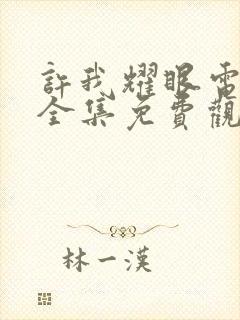 許我耀眼電
全集免費觀
林一漢